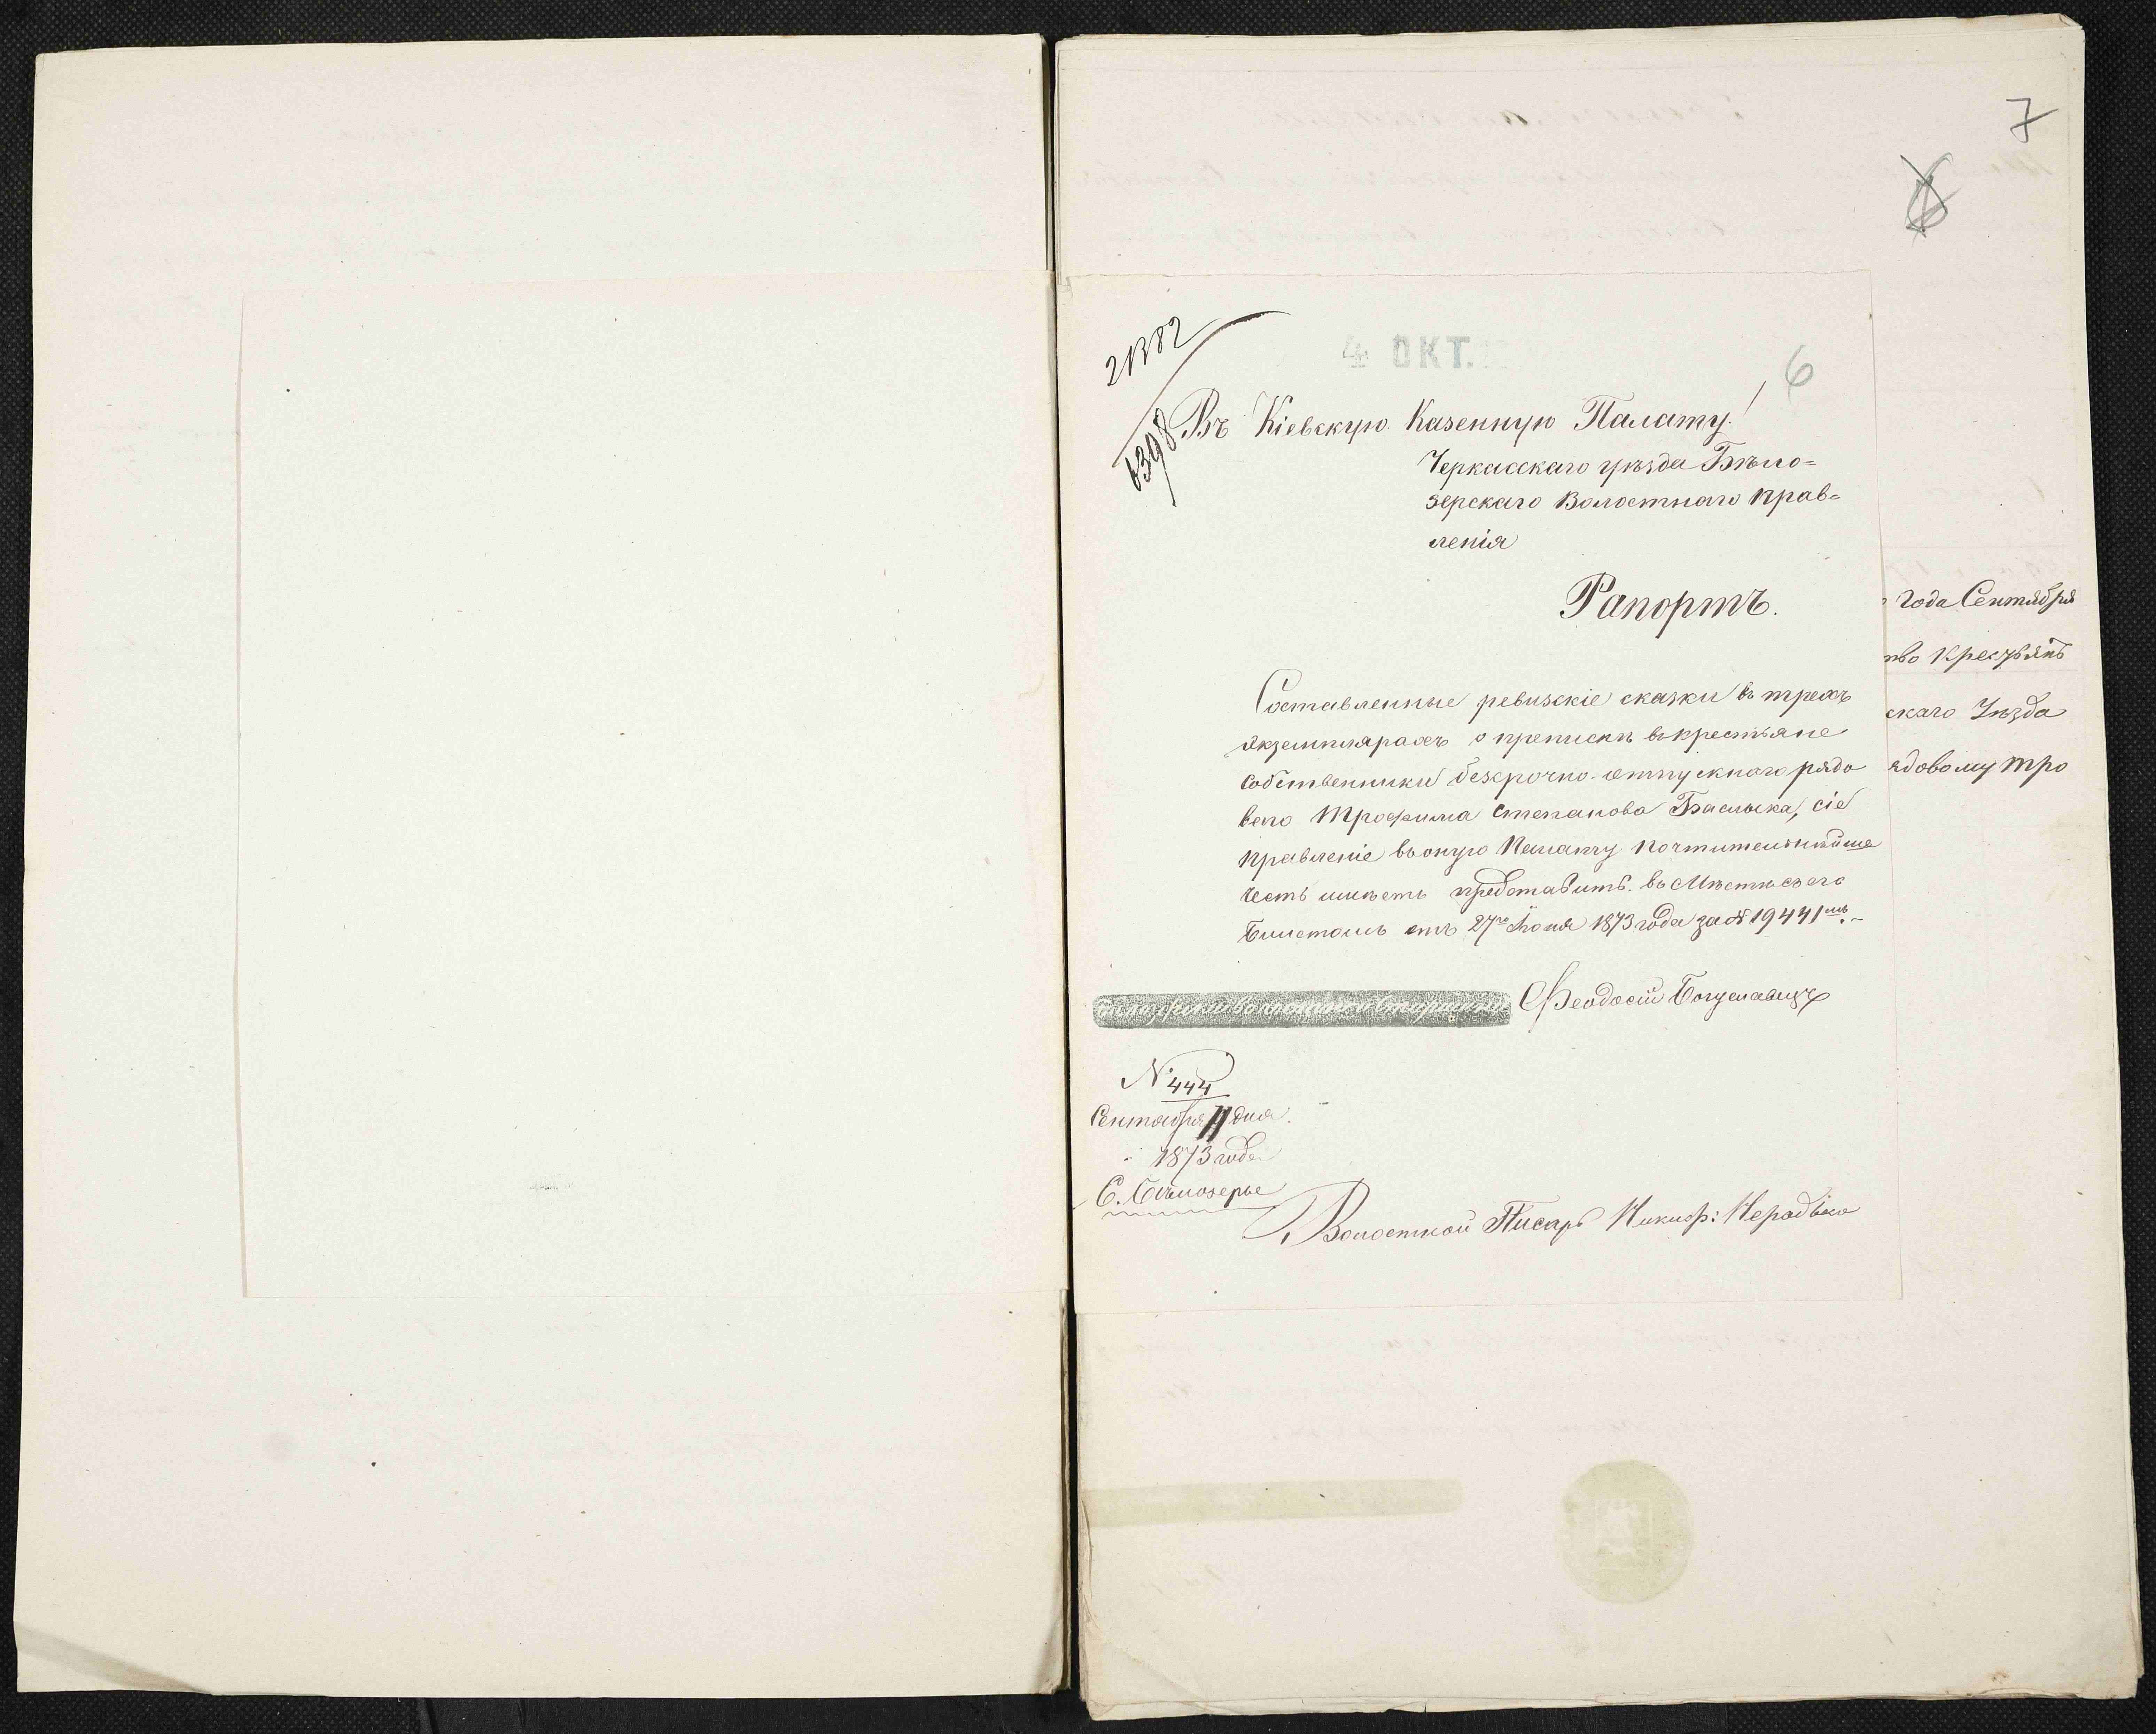 7
21382
6398
4 ОКТ.
6
Въ Кіевскую Казенную Палату!
Черкасскаго уѣзда Бѣло=
зерскаго Волостнаго Прав=
ленія
Рапортъ.
Составленные ревизскіе сказки въ трехъ
экземплярахъ о преписки въ крестьяне
собственники безсрочно-отпускнаго рядо
ваго Трофима Степанова Баслыка, сіе
Правленіе въ оную Палату почтительнѣйше
честь имѣетъ представить. въ Мѣстѣ съ его
билетомъ отъ 27го Іюня 1873 года за № 19441мъ.-
Бѣлозерскій волостной старшина Феодосій Богуславецъ
№ 444
Сентября 11 дня.
1873 года
С. Бѣлозерье
Волостной Писарь Никиф:
года Сентября
тво крестьянъ
скаго Уѣзда
ядовому Тро